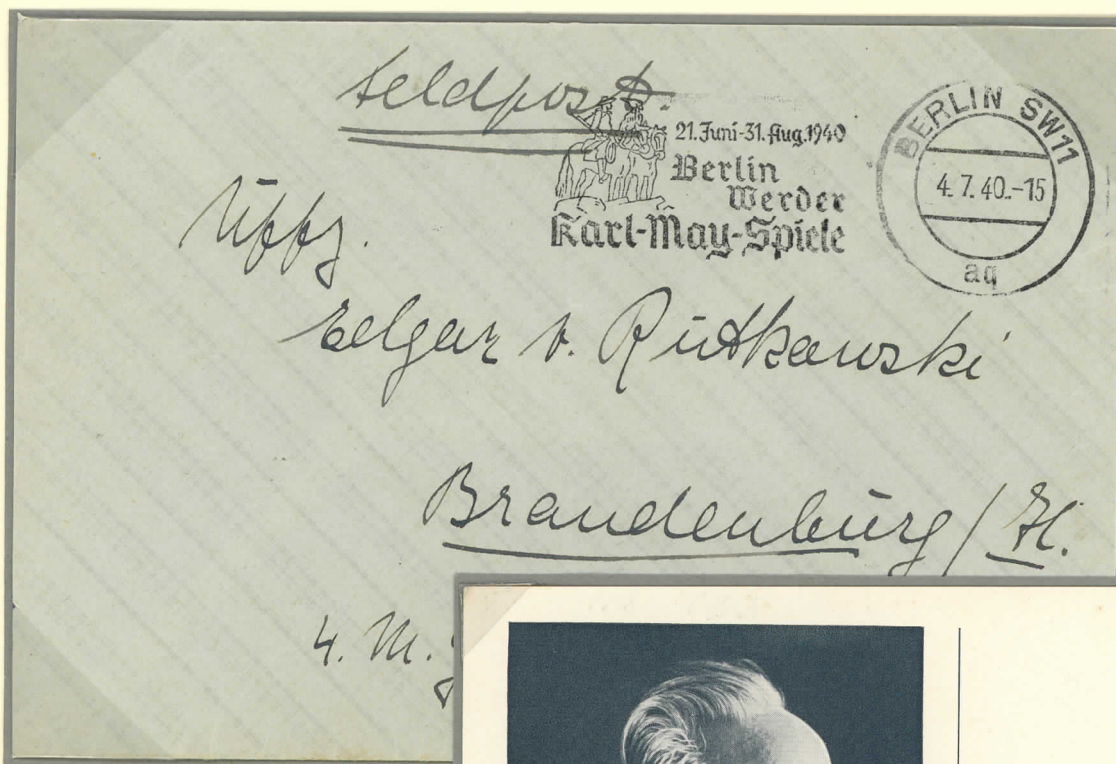 Feldpost.
21. Juni-31. Aug. 1940
Berlin
Werder
Karl-May-Spiele
BERLIN SW11
4.7.40.-15
aq
Uffz.
Edgar v. Rutkowski
Brandenburg / H.
4. M.